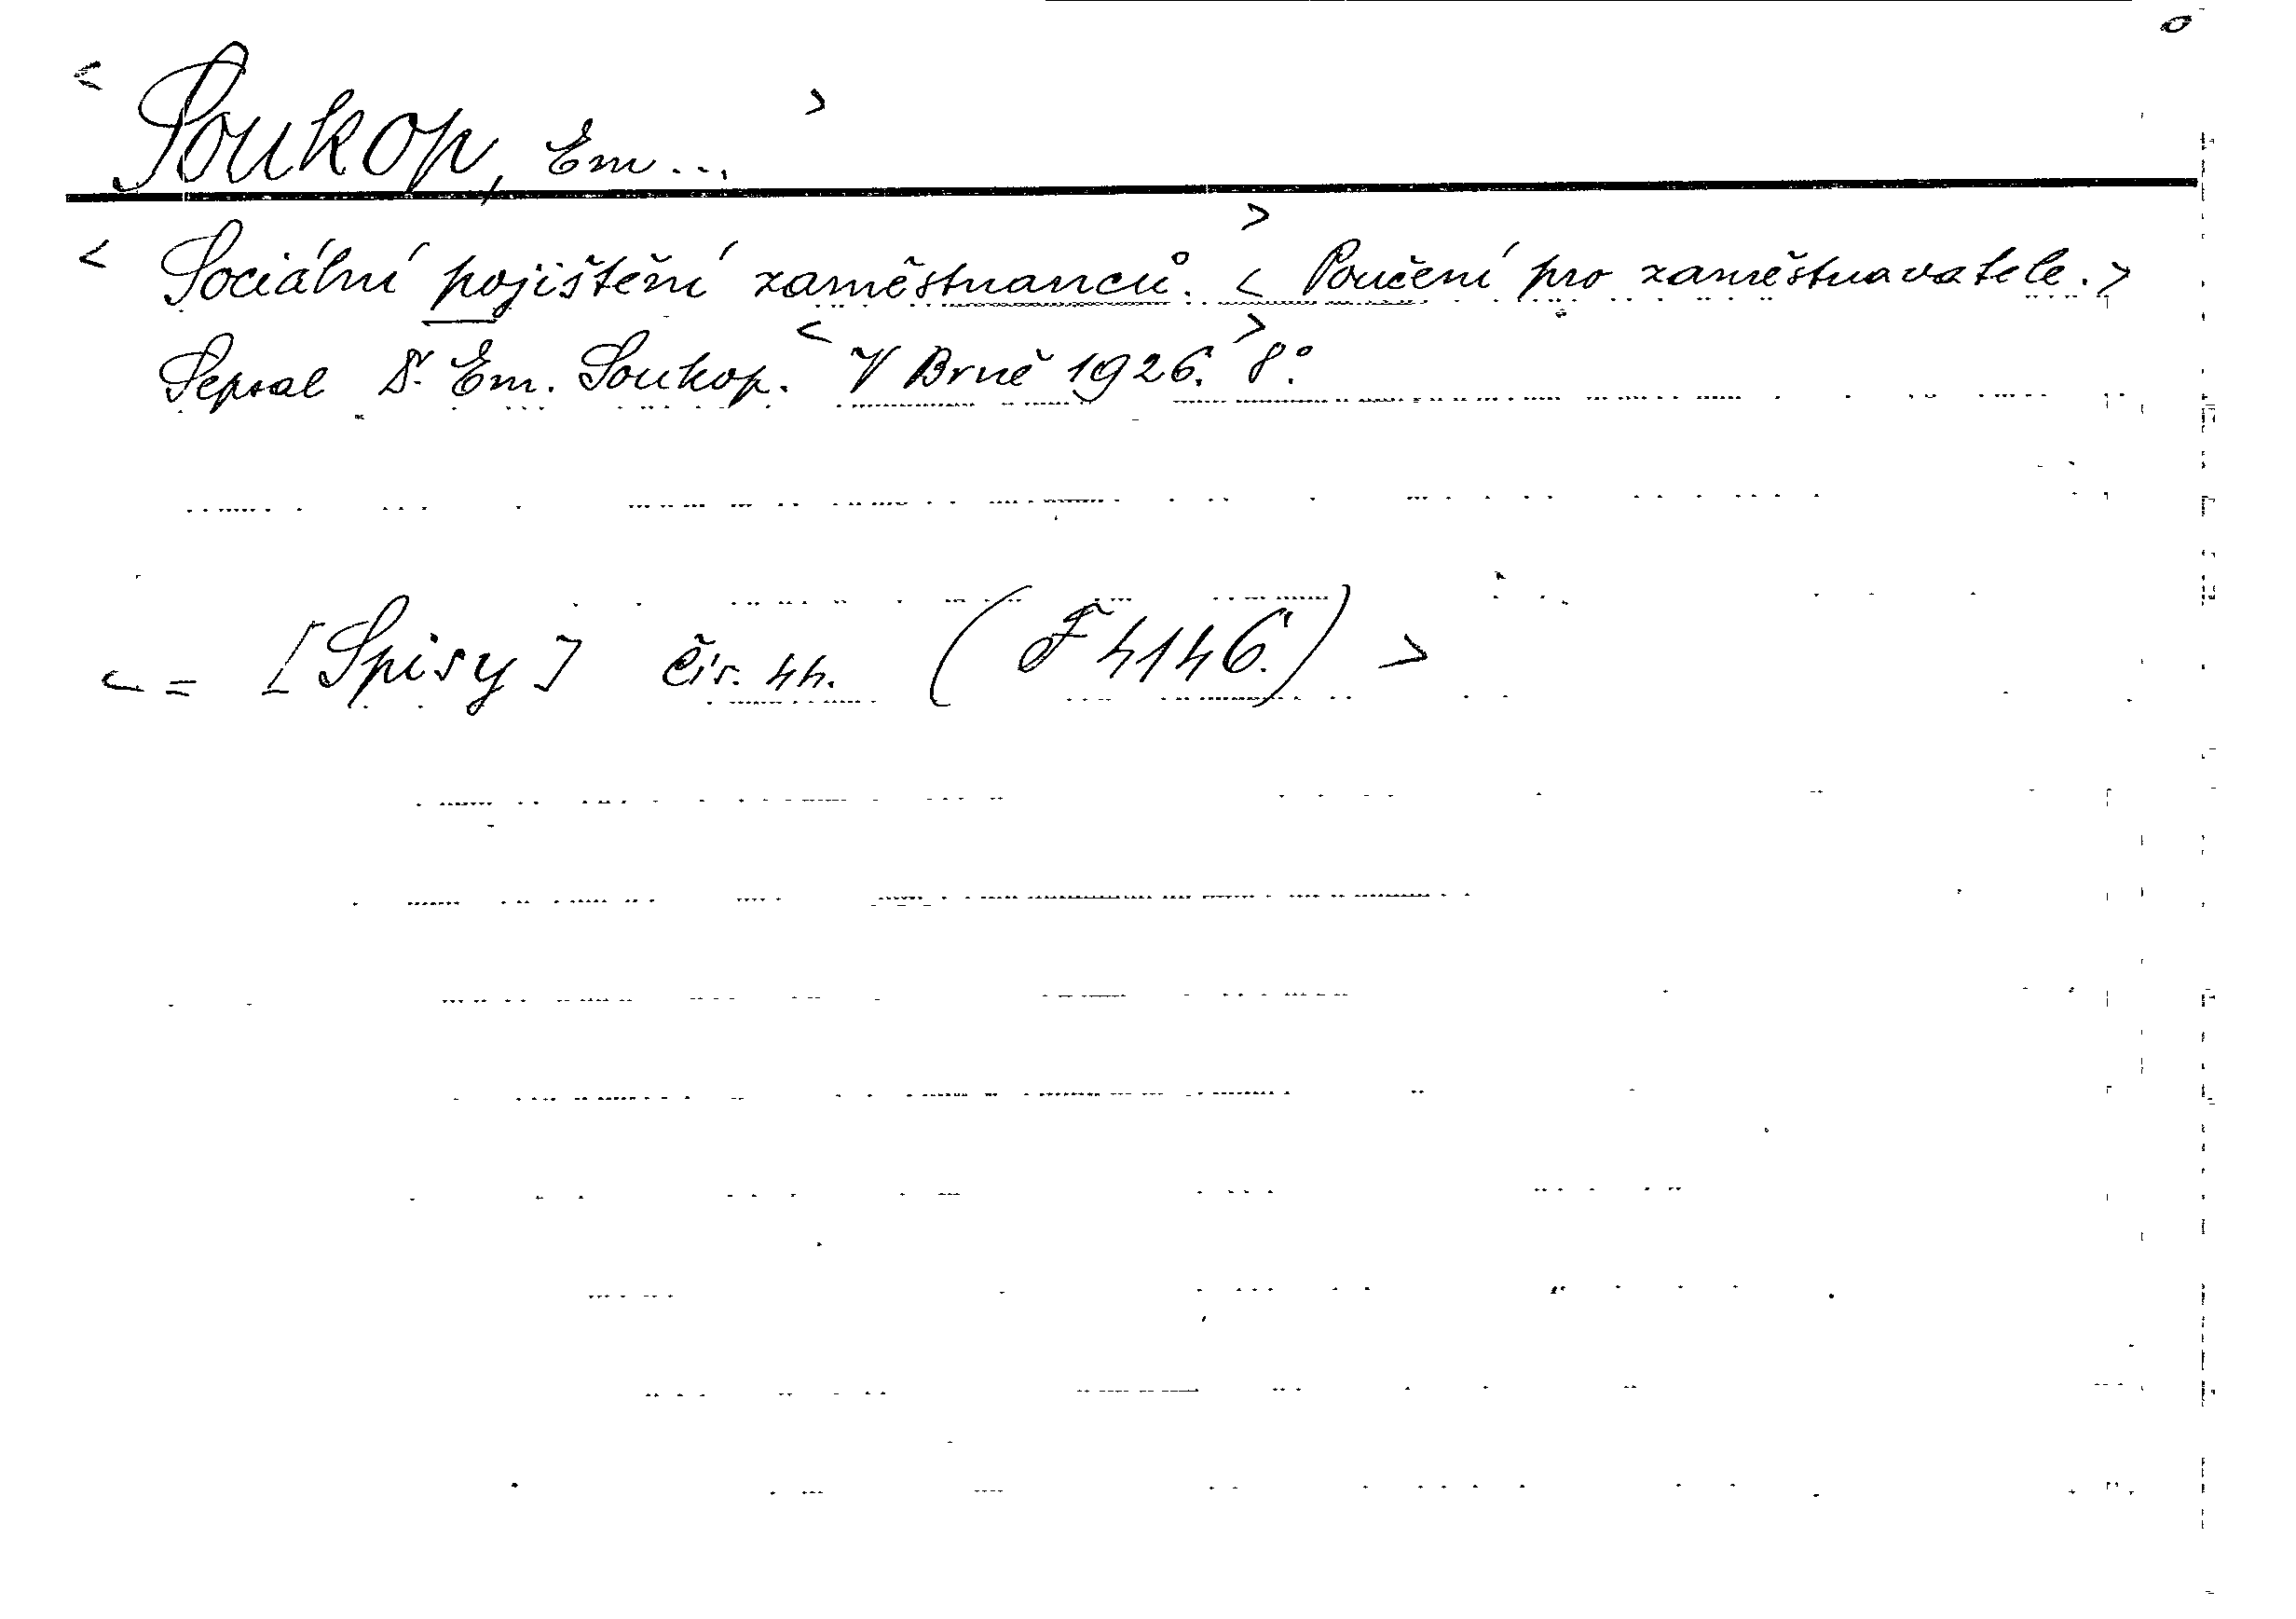 < Soukop, Em... >
< Sociální pojištění zaměstnanců. > < Poučení pro zaměstnavatele. >
Sepsal Dr. Em. Soukop. < V Brně 1926. > 8°.
< = [Spisy] čís. 44. (F 4146.) >